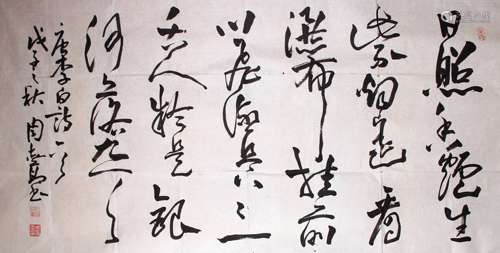 日照香爐生
紫烟遥看
瀑布挂前
川飛流直下三
千尺疑是銀
河落九天
唐李白詩一首
戊子之秋周志高书